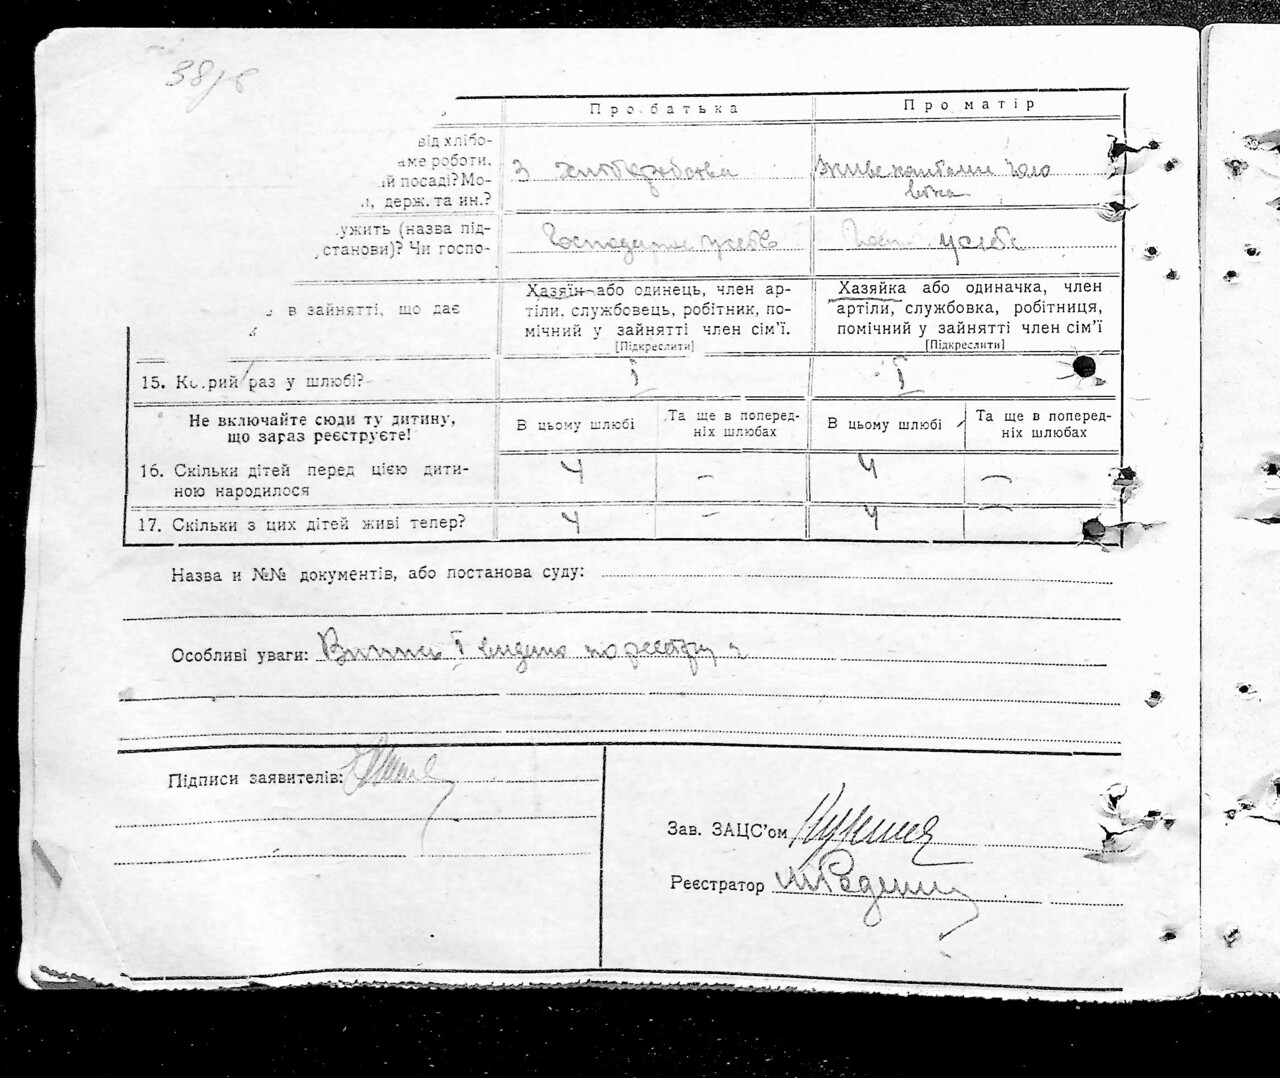 Про батька
Про матір
від хлібо-
аме роботи,
ій посаді? Мо-
и, держ. та ин.?
З хліборобства
Живе коштами чоло
віка
ужить (назва під-
станови)? Чи госпо-
Господарює усебе
усебе
в зайнятті, що дає
Хазяїн або одинець, член ар-
тіли, службовець, робітник, по-
мічний у зайнятті член сім'ї.
[Підкреслити]
Хазяйка або одиначка, член
артіли, службовка, робітниця,
помічний у зайнятті член сім'ї
[Підкреслити]
15. Котрий раз у шлюбі?
I
I
Не включайте сюди ту дитину,
що зараз реєструєте!
В цьому шлюбі
Та ще в поперед-
ніх шлюбах
В цьому шлюбі
Та ще в поперед-
ніх шлюбах
16. Скільки дітей перед цією дити-
ною народилося
4
–
4
–
17. Скільки з цих дітей живі тепер?
4
–
4
–
Назва и №№ документів, або постанова суду:
Особливі уваги: Випись I видано по реєстру
Підписи заявителів:
Зав. ЗАЦС'ом
Реєстратор